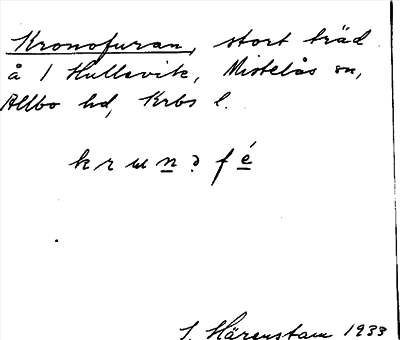 Kronofuran, stort träd
å 1 Hullsvik, Mistelås sn,
Allbo hd, Krbs l.
k r u n ? f é
S. Härenstam 1933